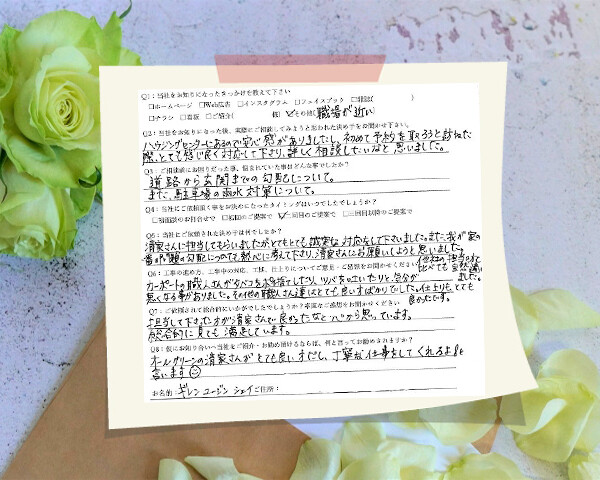 Q1：当社をお知りになったきっかけを教えて下さい
□ホームページ □Web広告 □インスタグラム □フェイスブック □雑誌( )
□チラシ □看板 □ご紹介( 様) ☑その他(職場が近い)
Q2：当社をお知りになった後、実際にご相談してみようと思われた決め手をお聞かせ下さい。
ハウジングセンターにあるので安心感がありましたし、初めて予約を取ろうと訪ねた
際、とても感じ良く対応して下さり、詳しく相談したいなと思いました。
Q3：ご相談前にお困りだった事、悩まれていた事はどんな事でしたか？
道路から玄関までの勾配について。
また、駐車場の雨水対策について。
Q4：当社にご依頼頂く事をお決めになったタイミングはいつでしたでしょうか？
□初回のお打合せで □初回のご提案で ☑二回目のご提案で □三回目以降のご提案で
Q5：当社にご依頼された決め手は何でしたか？
清家さんに担当してもらいましたがとてもとても誠実な対応をして下さいました。また、我が家の
一番の問題の勾配について熱心に考えて下さり、清家さんにお願いしようと思いました。
(他社の担当の方と
比べても全然違い
ました。
Q6：工事の進め方、工事中の対応、工期、仕上りについてご意見・ご感想をお聞かせください
カーポートの職人さんがタバコをポイ捨てしたり、ツバを吐いたりと、気分が
悪くなる事がありました。その他の職人さん達はとても良い方ばかりでした。仕上りもとても
良かったです。
Q7：ご依頼されて総合的にいかがでしたでしょうか？率直なご感想をお聞かせください
担当して下さった方が清家さんで良かったなと心から思っています。
総合的に見ても満足しています。
Q8：仮にお知り合いへ当社をご紹介・お勧め頂けるならば、何と言ってお勧めされますか？
オールグリーンの清家さんがとても良い方だし、丁寧な仕事をしてくれるよ！と
言います
お名前：ギレン ユージン シェイ ご住所：